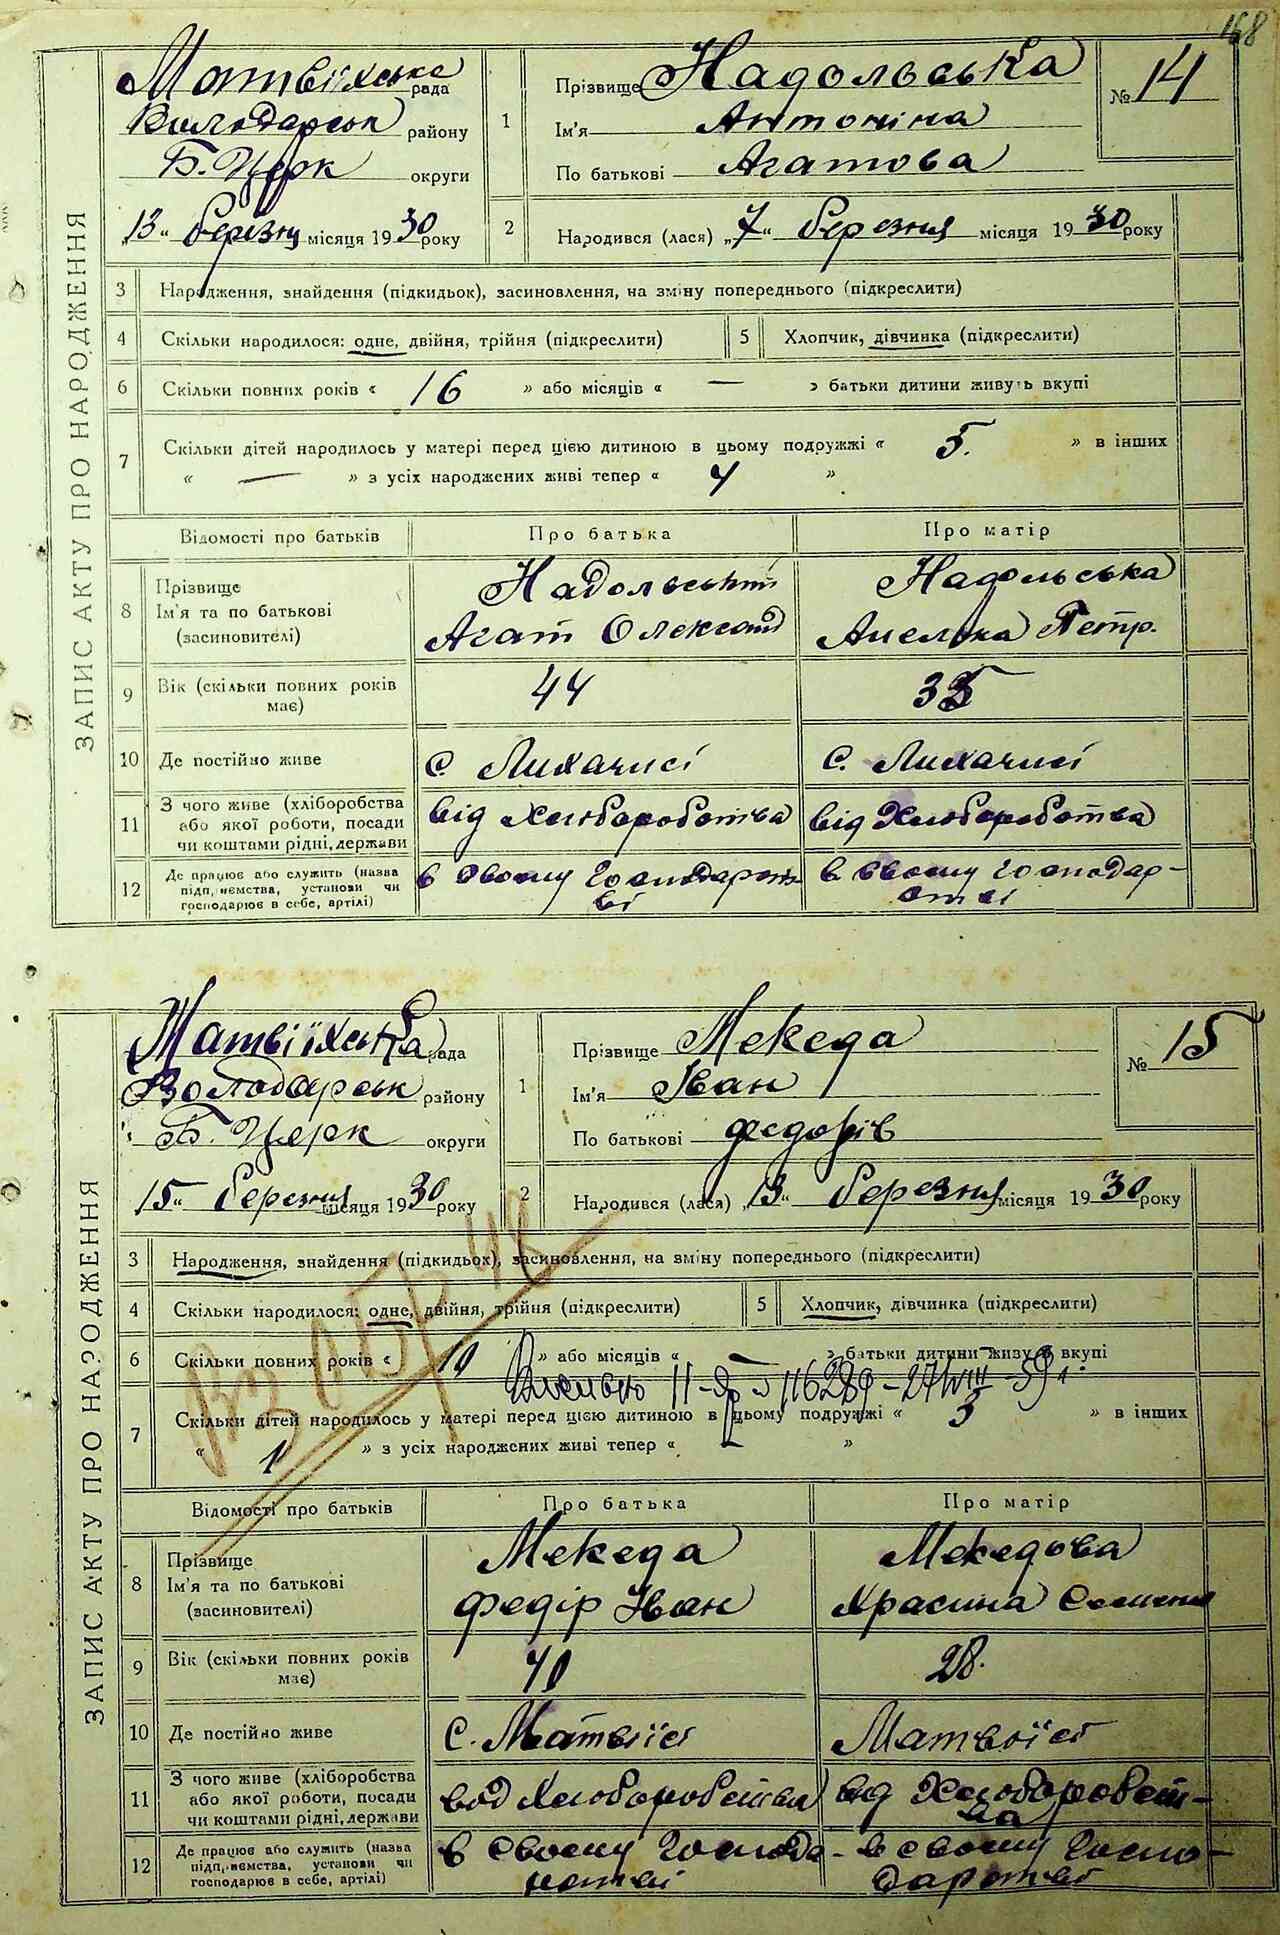 168
ЗАПИС АКТУ ПРО НАРОДЖЕННЯ
Матвіїхська рада
Володарськ району
Б. Церк округи
„13“ березня місяця 1930 року
1
Прізвище Надольська
Ім'я Антоніна
По батькові Агатова
№ 14
2
Народився (лася) „7“ березня місяця 1930 року
3 Народження, знайдення (підкидьок), засиновлення, на зміну попереднього (підкреслити)
4 Скільки народилося: одне, двійня, трійня (підкреслити) 5 Хлопчик, дівчинка (підкреслити)
6 Скільки повних років « 16 » або місяців « — » батьки дитини живуть вкупі
7 Скільки дітей народилось у матері перед цією дитиною в цьому подружжі « 5. » в інших
« — » з усіх народжених живі тепер « 4 »
Відомості про батьків Про батька Про матір
8 Прізвище
Ім'я та по батькові
(засиновителі)
Надольський
Агат Олександ
Надольська
Анелька Петр.
9 Вік (скільки повних років має) 44 35
10 Де постійно живе С. Лихачисі С. Лихачисі
11 З чого живе (хліборобства
або якої роботи, посади
чи коштами рідні, держави
від Хліборобства від Хліборобства
12 Де працює або служить (назва
підприємства, установи чи
господарює в себе, артілі)
в своєму господарст-
ві
в своєму господар-
стві
ЗАПИС АКТУ ПРО НА?ОДЖЕННЯ
Матвіїхська рада
Володарськ району
Б. Церк округи
15“ березня місяця 1930 року
1
Прізвище Мекеда
Ім'я Іван
По батькові Федорів
№ 15
2
Народився (лася) „13“ березня місяця 1930 року
3 Народження, знайдення (підкидьок), засиновлення, на зміну попереднього (підкреслити)
4 Скільки народилося: одне, двійня, трійня (підкреслити) 5 Хлопчик, дівчинка (підкреслити)
6 Скільки повних років « 10 » або місяців « — » батьки дитини живуть вкупі
7 Скільки дітей народилось у матері перед цією дитиною в цьому подружжі « 3 » в інших
« 1 » з усіх народжених живі тепер « »
Відомості про батьків Про батька Про матір
8 Прізвище
Ім'я та по батькові
(засиновителі)
Мекеда
Федір Іван
Мекедова
Красина Семенів
9 Вік (скільки повних років має) 28.
10 Де постійно живе С. Матвіїсі Матвоїсі
11 З чого живе (хліборобства
або якої роботи, посади
чи коштами рідні, держави
від Хліборобства від Хліборобст-
ва
12 Де працює або служить (назва
підприємства, установи чи
господарює в себе, артілі)
в своєму господа-
рстві
в своєму госпо-
дарстві